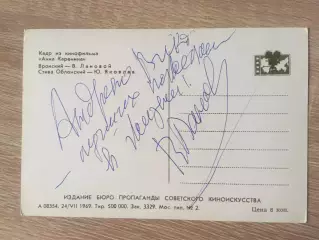 Кадр из кинофильма
«Анна Каренина»
Вронский — В. Лановой
Стива Облонский — Ю. Яковлев
Андрею
в
В Лановой
ИЗДАНИЕ БЮРО ПРОПАГАНДЫ СОВЕТСКОГО КИНОИСКУССТВА
А 08354. 24/VII 1969. Тир. 500 000. Зак. 3329. Мос. тип. № 2.
Цена 8 коп.